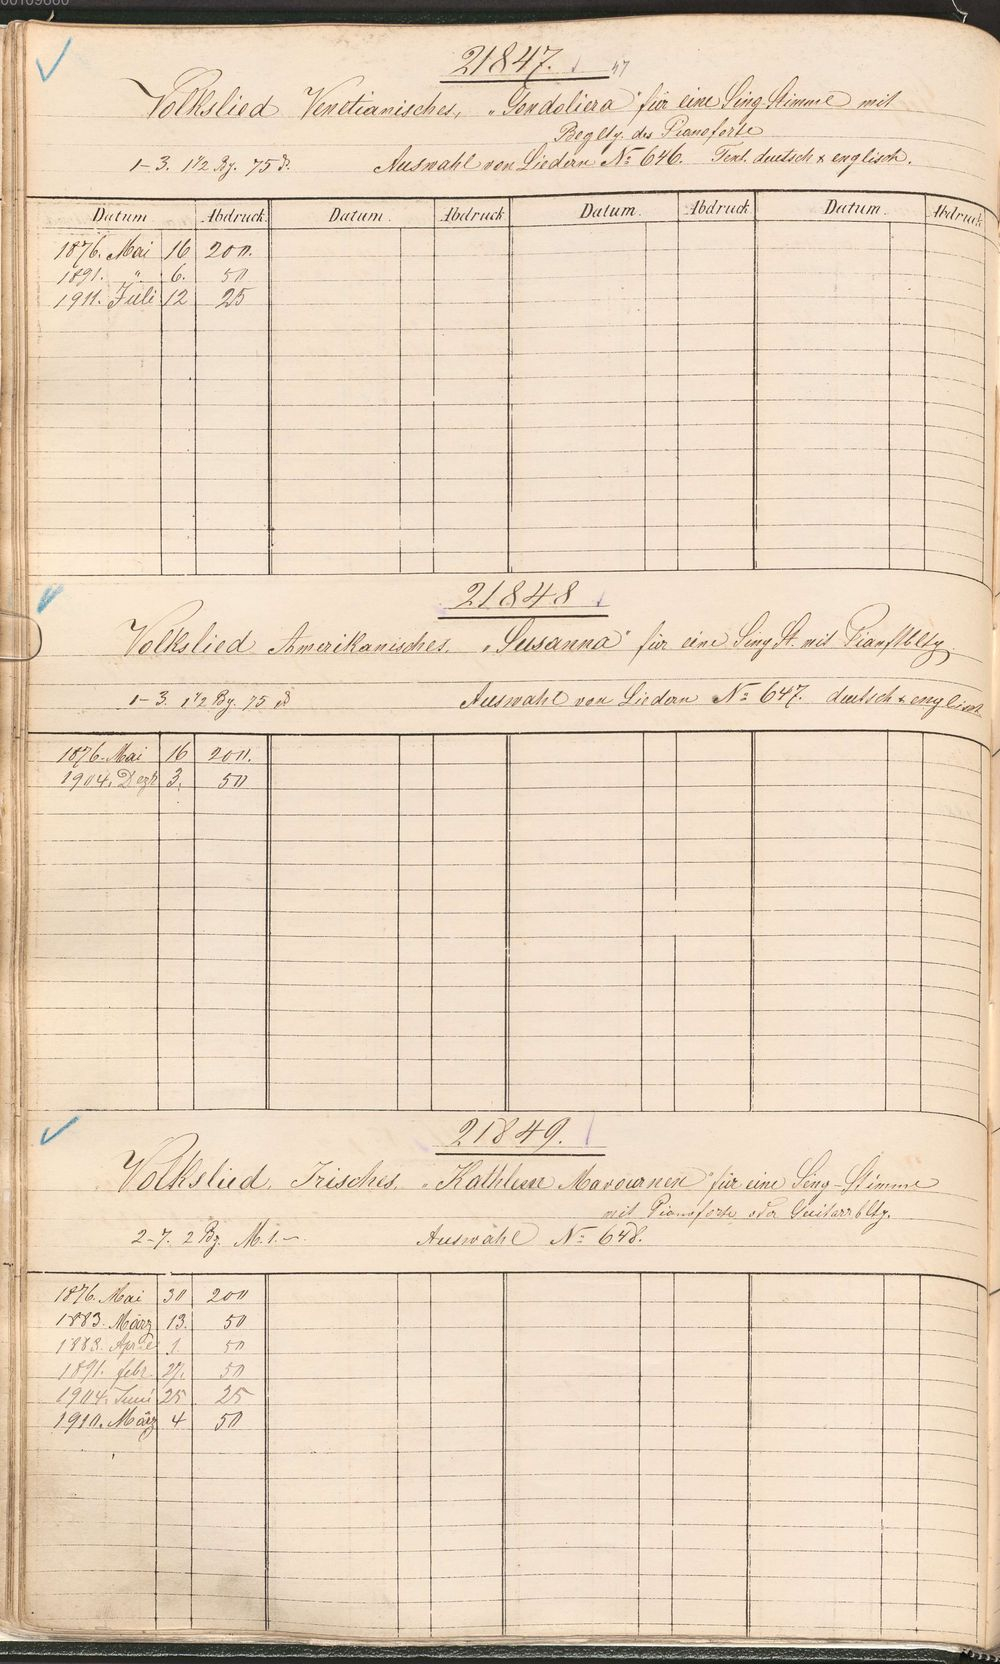 21847.
Volkslied Venetianisches, „Gondoliera" für eine Sing Stimme mit
Begltg. des Pianoforte
1-3. 1 1/2 Bg. 75 d. Auswahl von Liedern No 646. Text. deutsch & englisch.
Datum Abdruck Datum. Abdruck Datum. Abdruck Datum. Abdruck
1876. Mai 16 200.
1891. " 6. 50
1911. Juli 12 25
21848
Volkslied Amerikanisches. „Susanna" für eine Sing St. mit Pianfbltg.
1-3. 1 1/2 Bg. 75 d Auswahl von Liedern No 647. deutsch & englisch
1876. Mai 16 200.
1904. Dezb 3. 50
21849.
Volkslied, Irisches. „Kathleen Mavournen" für eine Sing-Stimme
mit Pianoforte oder Guitarrbltg.
2-7. 2 Bg. M. 1.— Auswahl No 648.
1876. Mai 30 200
1883. März 13. 50
1888. April 9. 50
1891. febr. 27. 50
1904. Juni 25 25
1910. März 4 50